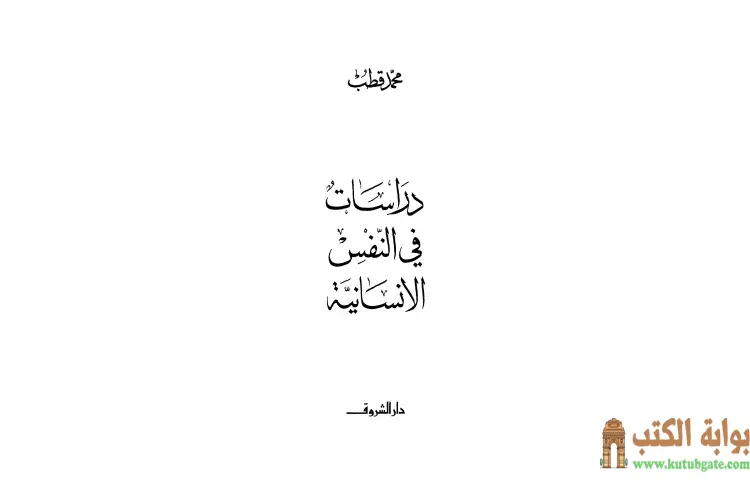 محمّد قطبْ
دَرَاسَاتٌ
في النّفسْ
الانسَانيَّة
دار الشروق
بوابة الكتب
www.kutubgate.com